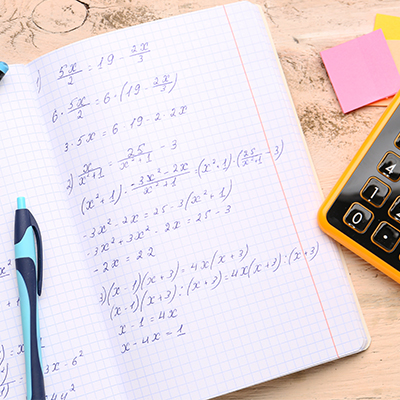 1) 5x/2 = 19 - 2x/3
6 · 5x/2 = 6 · (19 - 2x/3)
3 · 5x = 6 · 19 - 2 · 2x
2) x/x²+1 = 25/x²+1 - 3
(x²+1) · -3x²-2x/x²+1 = (x²+1) · (25/x²+1 - 3)
-3x² - 2x = 25 - 3(x²+1)
-3x² + 3x² - 2x = 25 - 3
-2x = 22
3) (x-1)(x+3) = 4x(x+3)
(x-1)(x+3) : (x+3) = 4x(x+3) : (x+3)
x - 1 = 4x
x - 4x = 1
3x - 6²
4
1
0
·